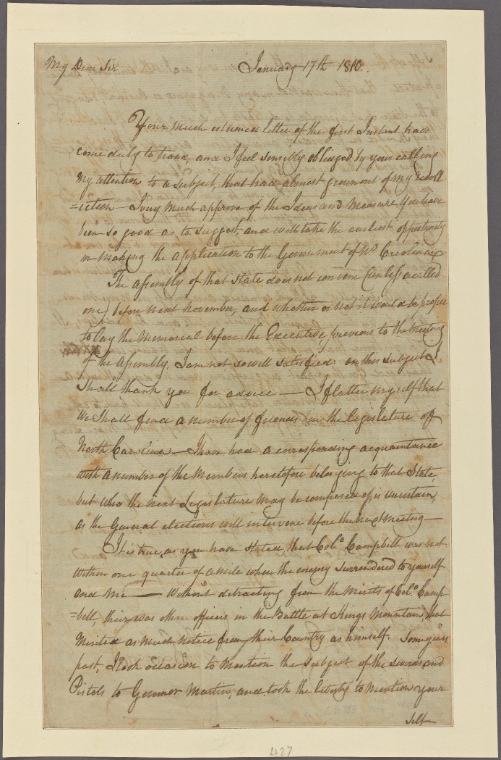 My Dear Sir
January 17th 1810.
Your much esteemed letter of the first Instant, has
come duly to hand, and I feel sensibly obliged by your calling
my attention to a subject, that had almost grown out of my recoll
=ection - I very much approve of the Ideas and Measures You have
been so good as to suggest, and will take the earliest opportunity
in making the application to the Government of No Carolina
The Assembly of that State does not convene (unless a called
one) before next November, and whether or not it would be proper
to lay the Memorial before the Executive previous to the meeting
of the Assembly, I am not so well satisfied: on this subject I
shall thank you for advice — I flatter myself that
We shall find a number of friends in the legislature of
North Carolina - I have had a corresponding acquaintance
with a number of the Members heretofore belonging to that State
but who the next Legislature may be composed of is uncertain
as the General elections will intervene before the next meeting —
It is true, as you have stated, that Colo. Campbell was not
within one quarter of a mile when the enemy surrendered to yourself
and me — Without detracting from the Merits of Colo. Camp
=bell, their was other officers in the Battle at Kings Mountain, that
Merited as much notice from their Country as himself. Some years
past, I took occasion to Mention the subject of the swords and
Pistols to Governor Martin, and took the liberty to Mention your
self
427